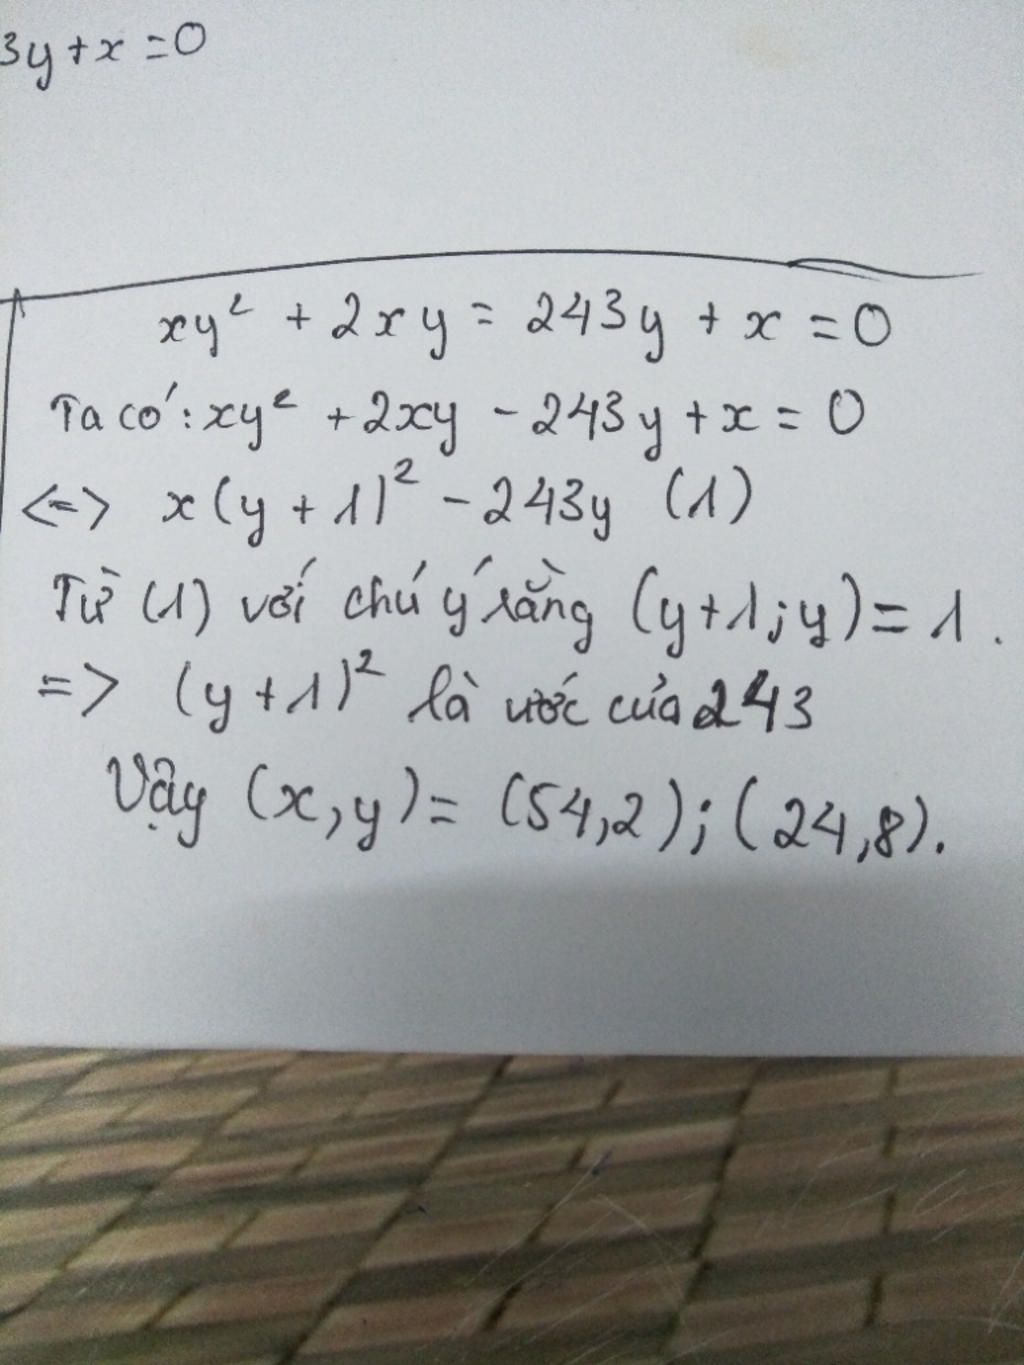 3y + x = 0
xy² + 2xy = 243y + x = 0
Ta có: xy² + 2xy - 243y + x = 0
<=> x(y + 1)² - 243y (1)
Từ (1) với chú ý rằng (y+1;y) = 1.
=> (y + 1)² là ước của 243
Vậy (x,y) = (54,2); (24,8).